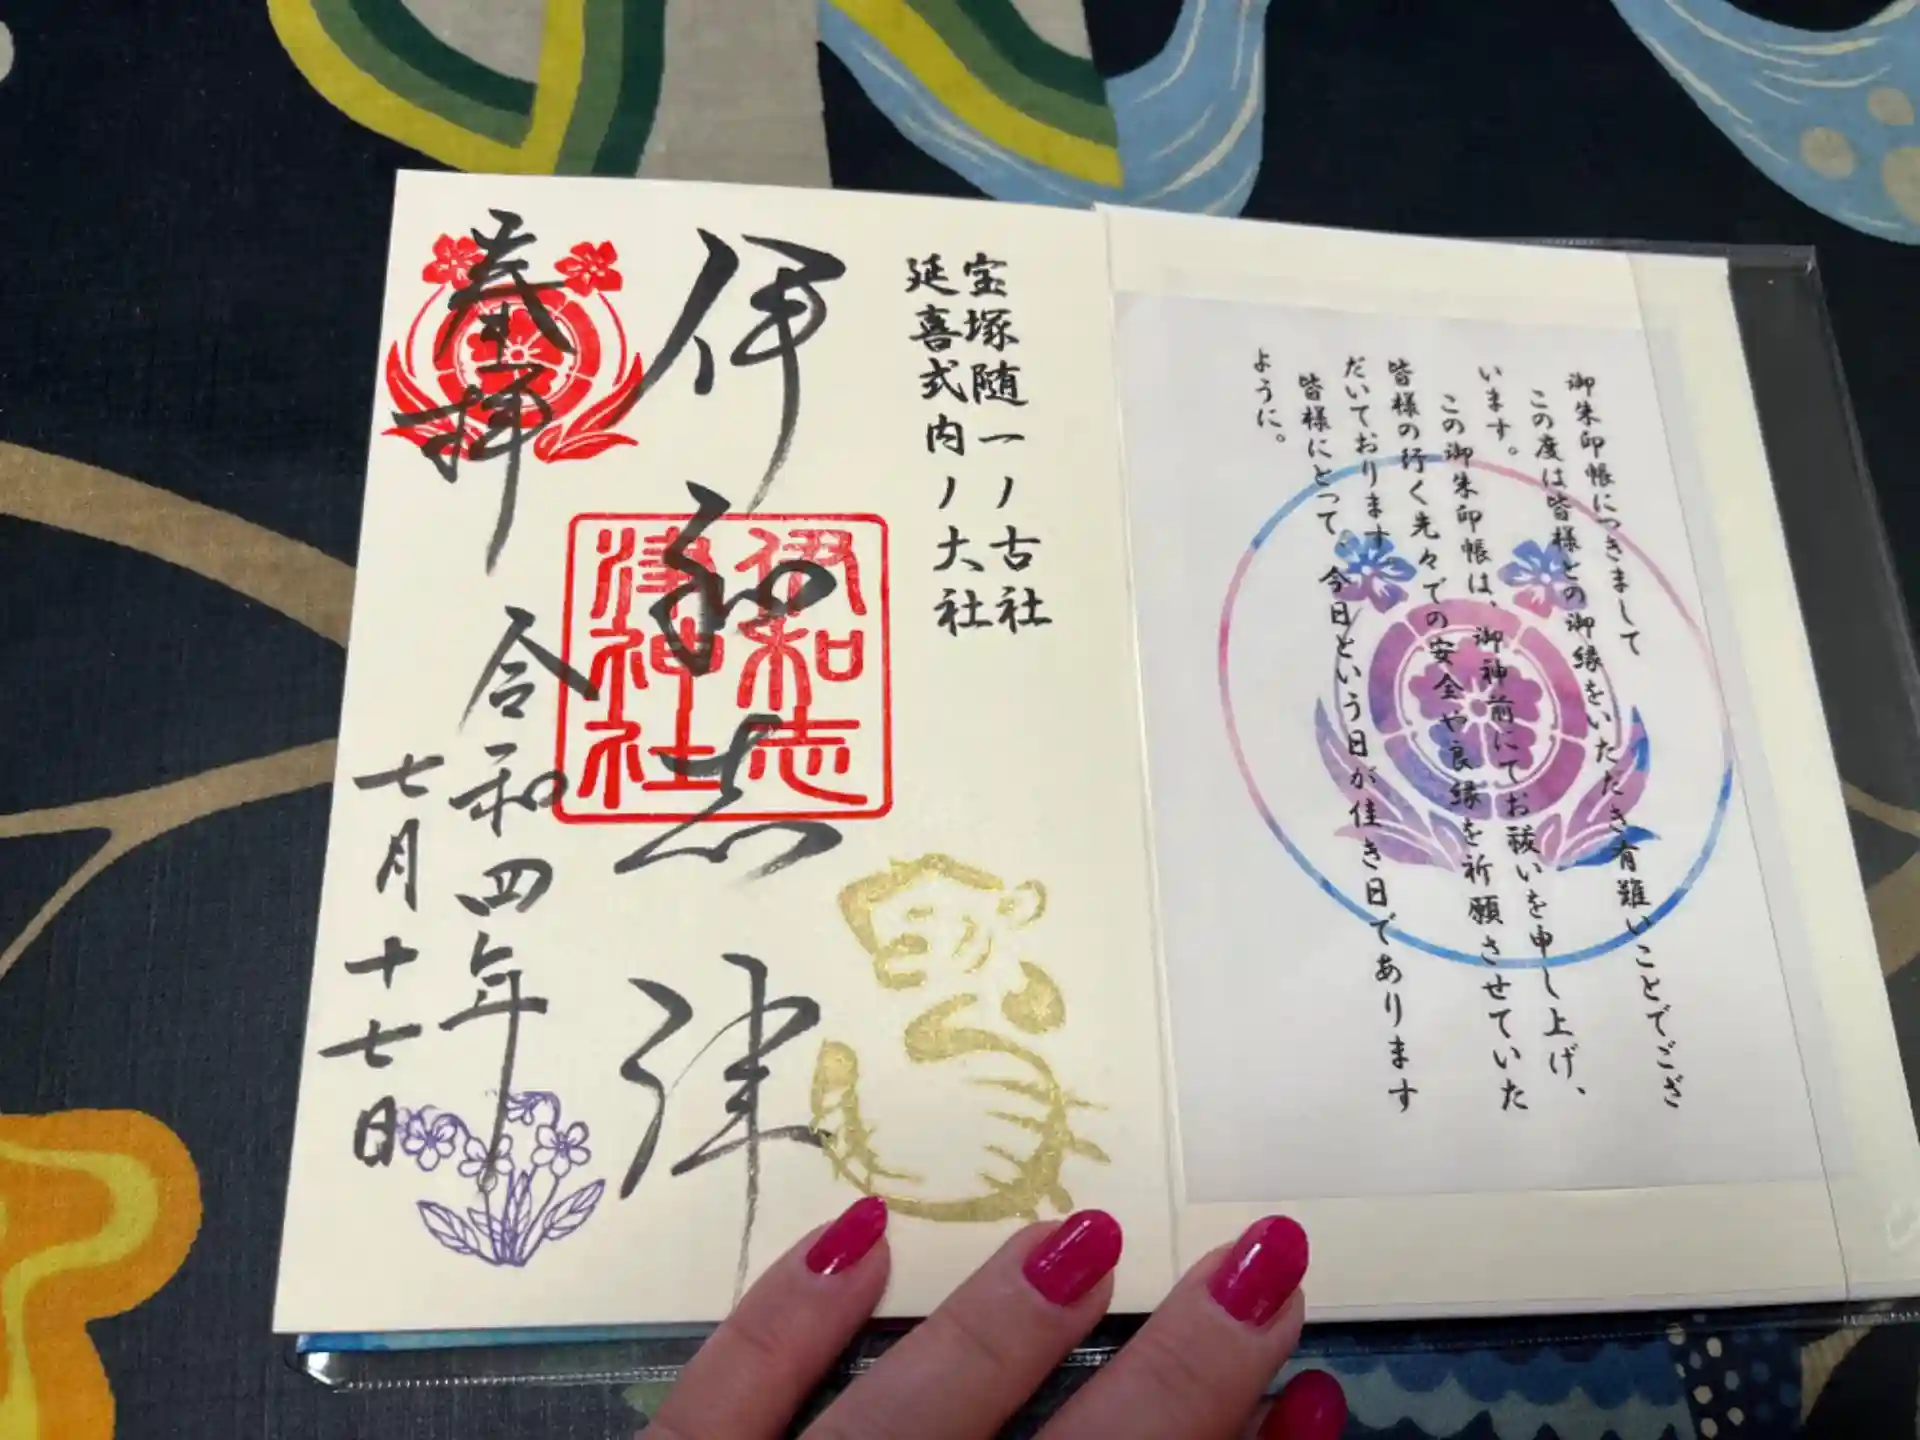 御朱印帳につきまして
この度は皆様との御縁をいただき有難いことでござ
います。
この御朱印帳は、御神前にてお祓いを申し上げ、
皆様の行く先々での安全や良縁を祈願させていた
だいております。
皆様にとって、今日という日が佳き日であります
ように。
宝塚随一ノ古社
延喜式内ノ大社
伊和志津
伊和志
津神社
奉拝
令和四年
七月十七日